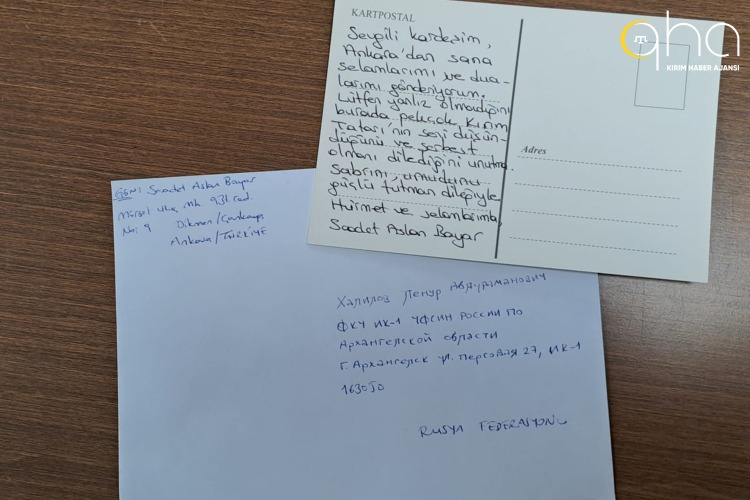 qha
KIRIM HABER AJANSI
KARTPOSTAL
Sevgili kardeşim,
Ankara'dan sana
selamlarımı ve dua-
larımı gönderiyorum.
Lütfen yanlız olmadığını
burada pekçok Kırım
Tatarı'nın seni düşün-
düğünü ve serbest
olmanı dilediğini unutma.
Sabrını, umudunu
güçlü tutman dileğiyle
Hürmet ve selamlarımla,
Saadet Aslan Bayar
Adres
Saadet Aslan Bayar
931 cad.
No: 9 Dikmen/Çankaya
Ankara/TÜRKİYE
Халилов Ленур Абдураманович
ФКУ ИК-1 УФСИН РОССИИ ПО
Архангелской области
г. Архангелск ул. Пирсовая 27, ИК-1
163050
RUSYA FEDERASYONU